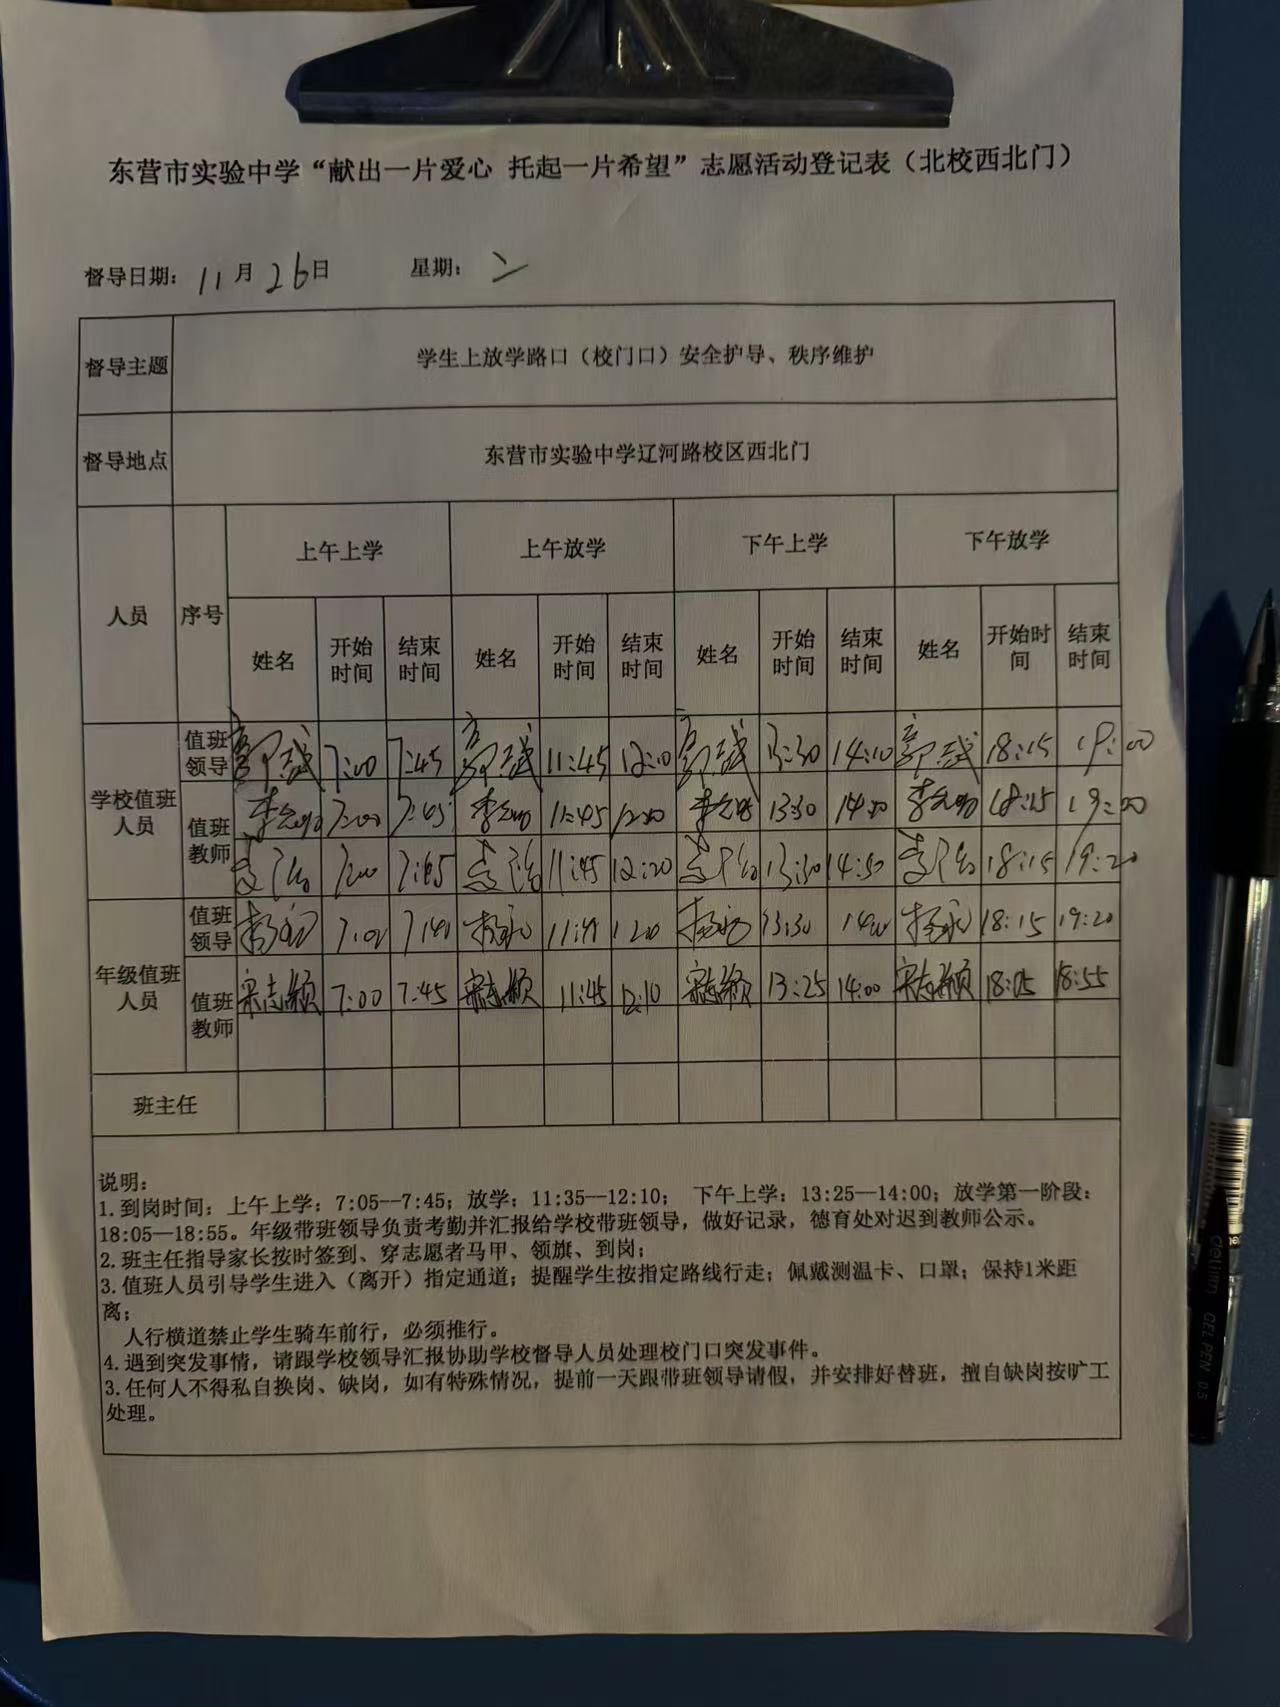 东营市实验中学“献出一片爱心 托起一片希望”志愿活动登记表（北校西北门）
督导日期：11月26日 星期：二
督导主题 学生上放学路口（校门口）安全护导、秩序维护
督导地点 东营市实验中学辽河路校区西北门
人员 序号 上午上学 上午放学 下午上学 下午放学
姓名 开始时间 结束时间 姓名 开始时间 结束时间 姓名 开始时间 结束时间 姓名 开始时间 结束时间
学校值班人员 值班领导 7:00 7:45 11:45 12:10 13:30 14:10 18:15 19:00
值班教师 7:00 7:45 11:45 13:30 18:15 19:00
7:00 7:45 11:45 12:20 13:30 18:15 19:20
年级值班人员 值班领导 13:30 18:15 19:20
值班教师 宋志颖 7:00 7:45 宋志颖 11:45 12:10 宋志颖 13:25 14:00 宋志颖 18:05 18:55
班主任
说明：
1.到岗时间：上午上学：7:05—7:45；放学：11:35—12:10； 下午上学：13:25—14:00；放学第一阶段：
18:05—18:55。年级带班领导负责考勤并汇报给学校带班领导，做好记录，德育处对迟到教师公示。
2.班主任指导家长按时签到、穿志愿者马甲、领旗、到岗；
3.值班人员引导学生进入（离开）指定通道；提醒学生按指定路线行走；佩戴测温卡、口罩；保持1米距
离；
人行横道禁止学生骑车前行，必须推行。
4.遇到突发事情，请跟学校领导汇报协助学校督导人员处理校门口突发事件。
3.任何人不得私自换岗、缺岗，如有特殊情况，提前一天跟带班领导请假，并安排好替班，擅自缺岗按旷工
处理。
GEL PEN 0.5